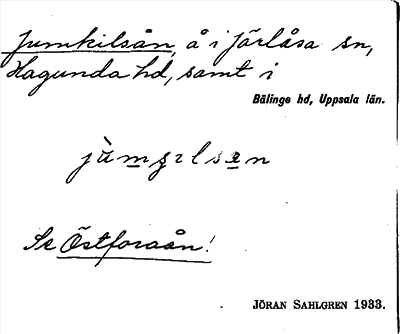 Jumkilsån, å i Järlåsa sn,
Hagunda hd, samt i
Bälinge hd, Uppsala län.
Se Östforaån!
JÖRAN SAHLGREN 1933.